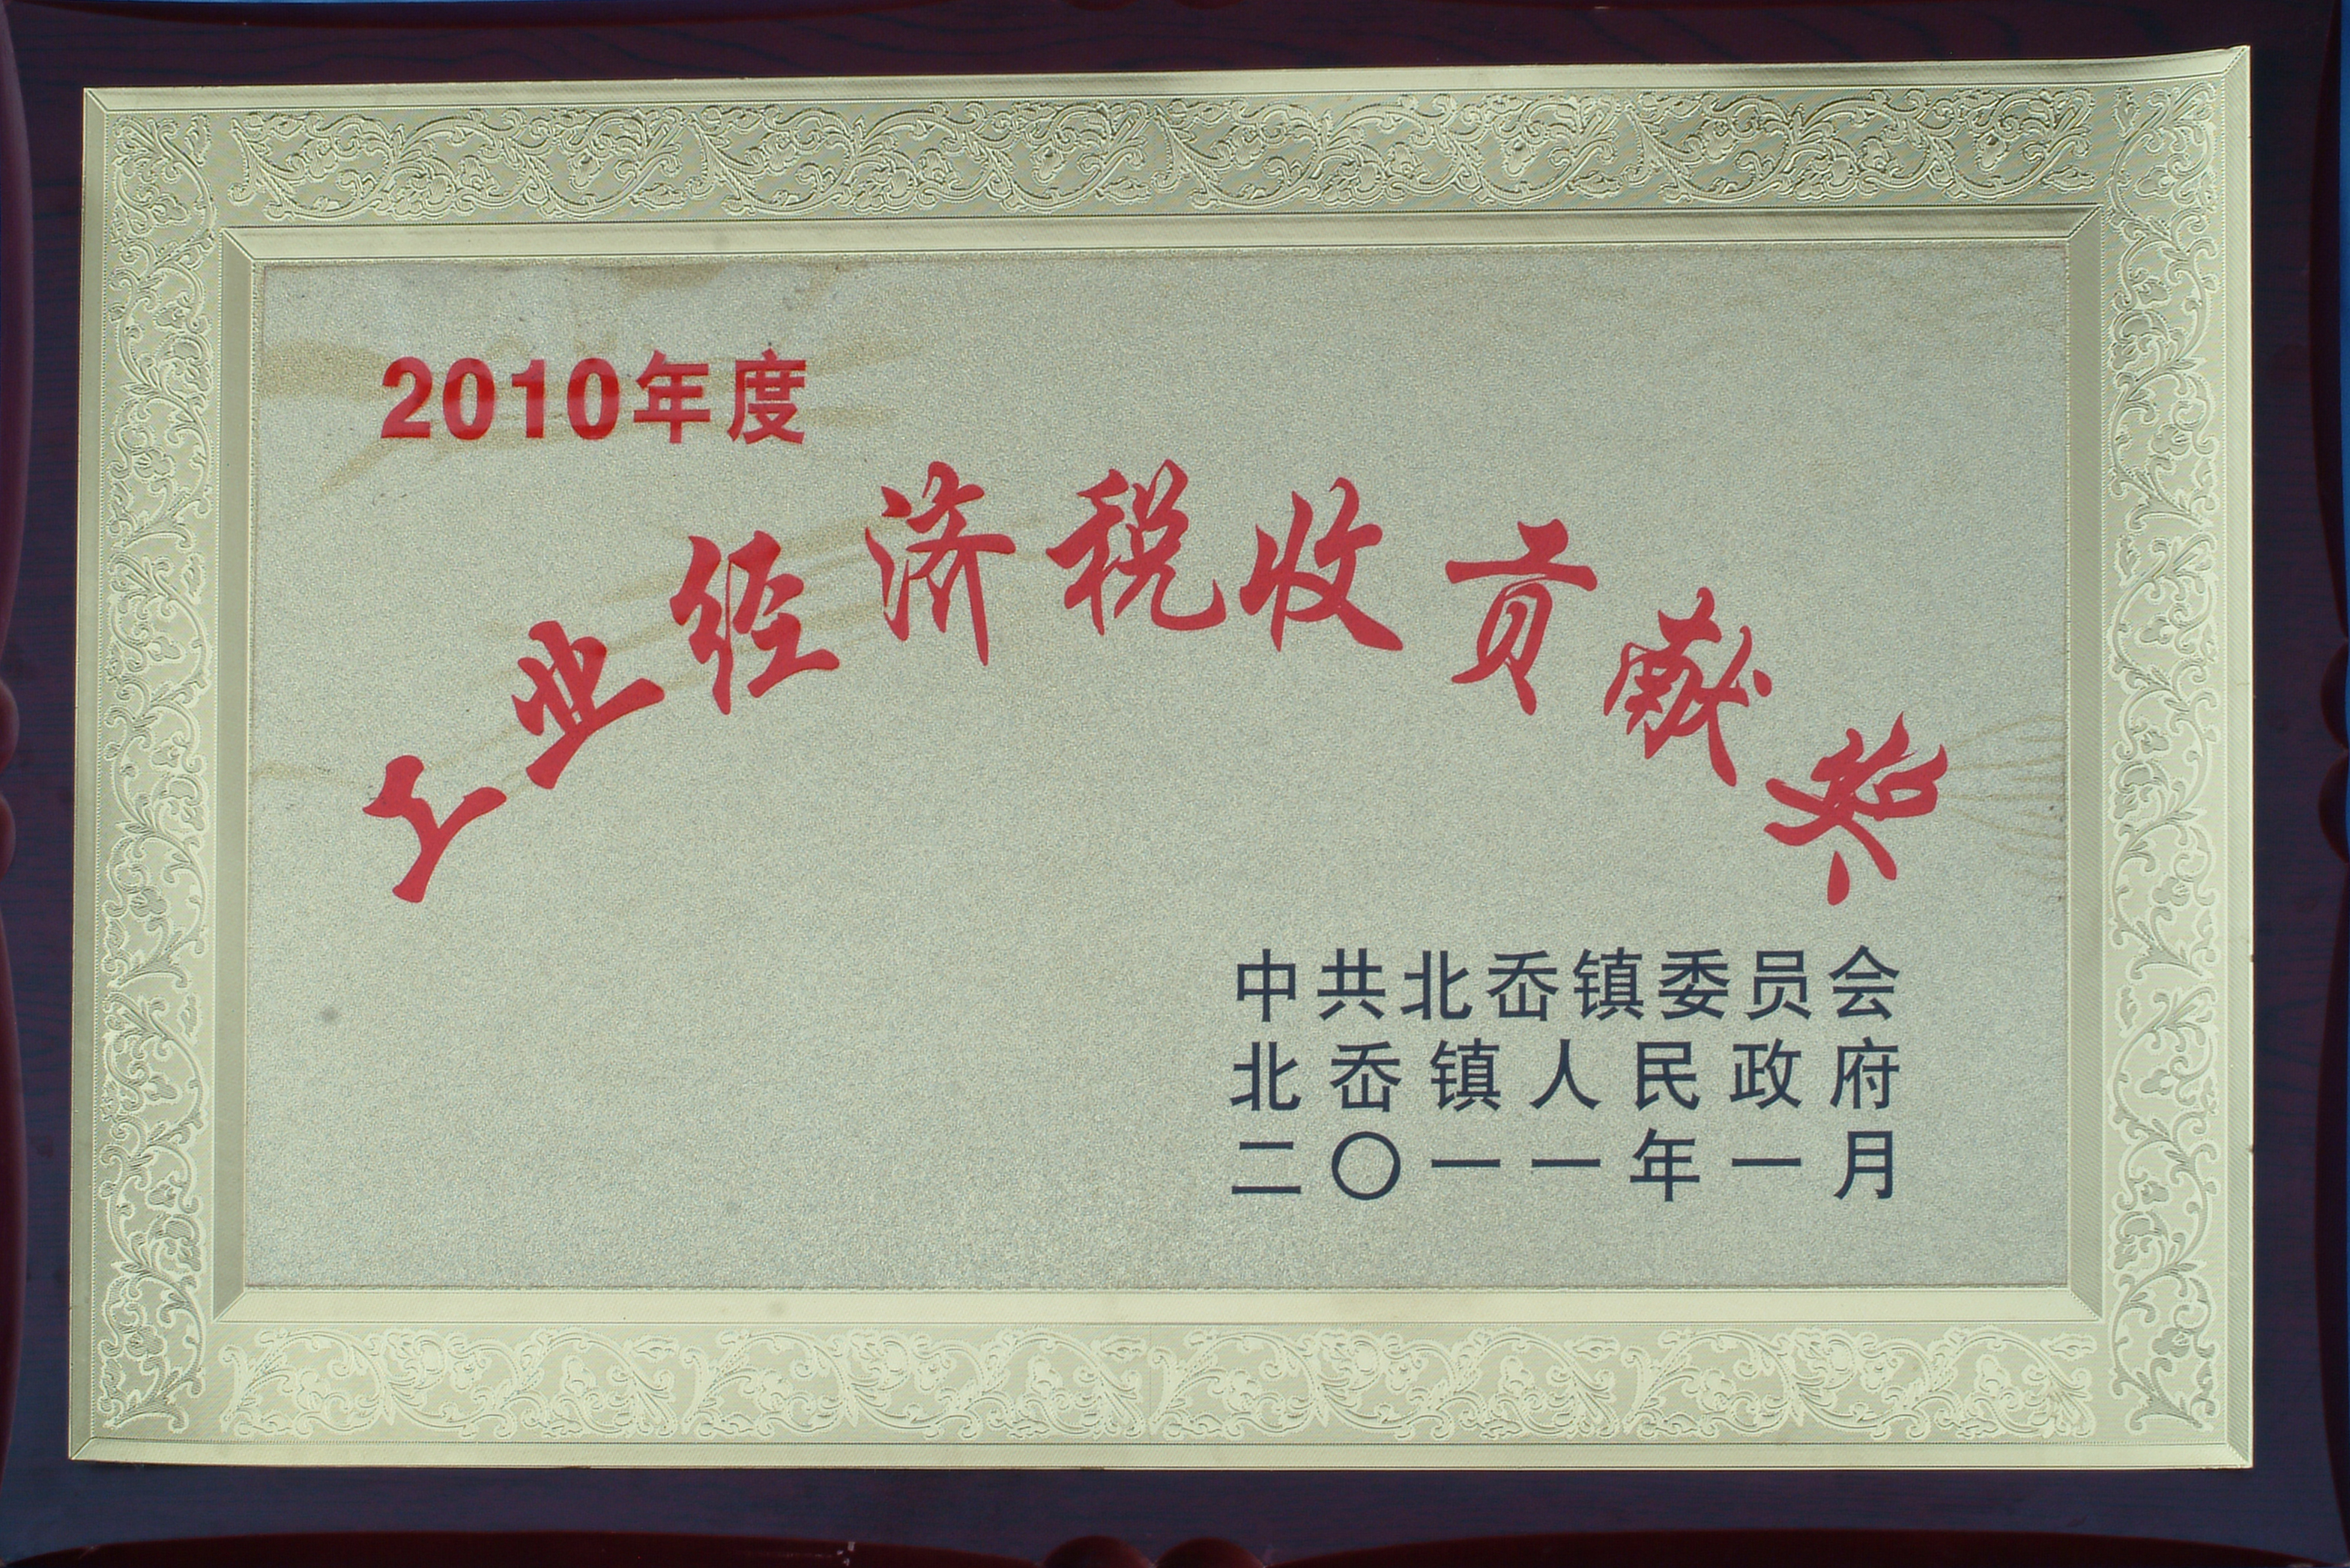 2010年度
工业经济税收贡献奖
中共北岙镇委员会
北岙镇人民政府
二〇一一年一月